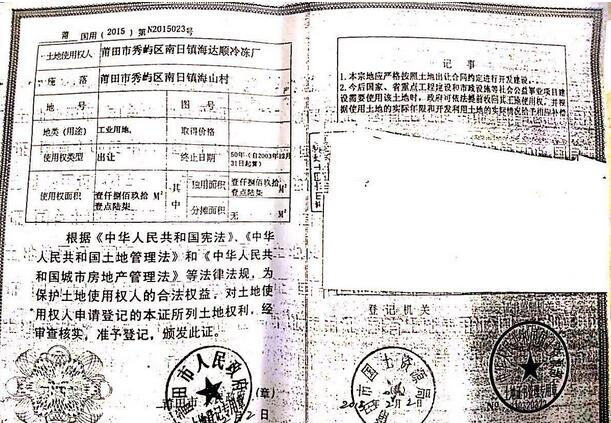 莆 国用(2015)第N2015023号
土地使用权人 莆田市秀屿区南日镇海达顺冷冻厂
座 落 莆田市秀屿区南日镇海山村
地 号 图 号
地类(用途) 工业用地. 取得价格
使用权类型 出让 终止日期 50年(自2003年12月31日起算)
使用权面积 壹仟捌佰玖拾壹点陆柒 M² 其中 独用面积 壹仟捌佰玖拾壹点陆柒 M²
分摊面积 无 M²
根据《中华人民共和国宪法》、《中华
人民共和国土地管理法》和《中华人民共
和国城市房地产管理法》等法律法规，为
保护土地使用权人的合法权益，对土地使
用权人申请登记的本证所列土地权利，经
审查核实，准予登记，颁发此证。
莆田市人民政府
(章)
记 事
1. 本宗地应严格按照土地出让合同约定进行开发建设。
2. 今后国家、省重点工程建设和市政设施等社会公益事业项目建
设需要使用该土地时，政府可依法提前收回其土地使用权，并根
据使用土地的实际年限和开发利用土地的实际情况给予相应补偿
登 记 机 关
莆田市国土资源局